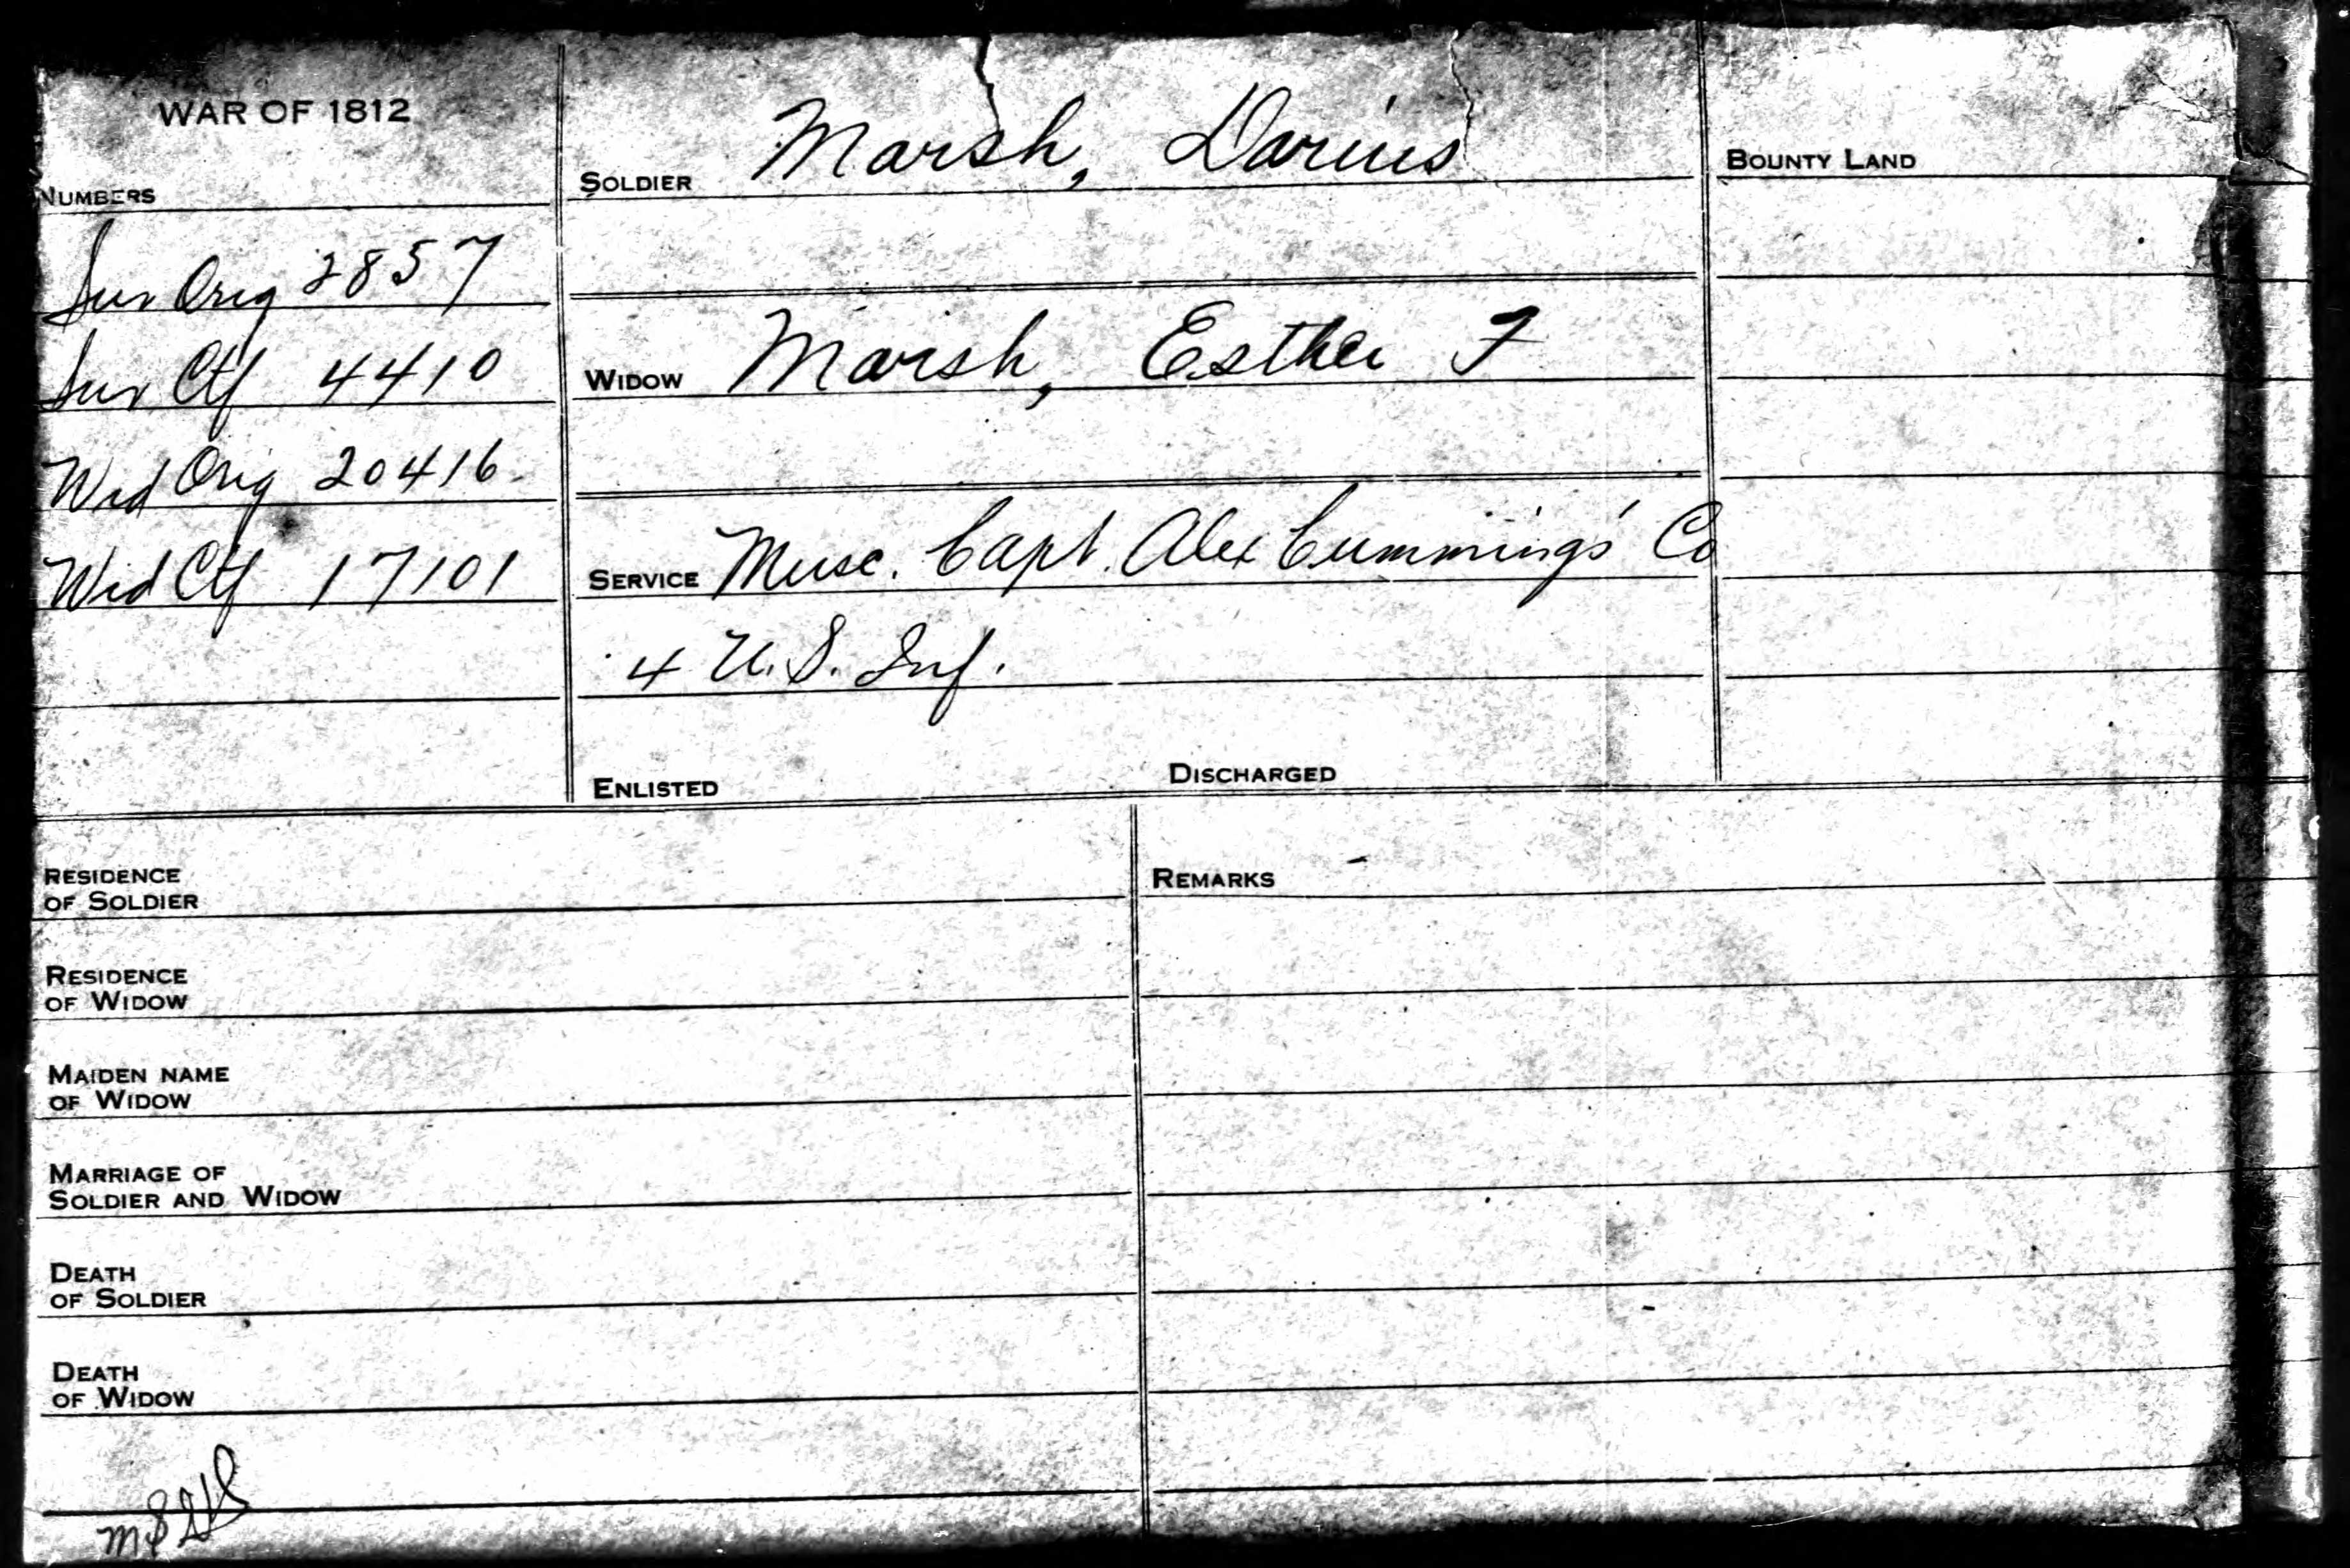 WAR OF 1812
NUMBERS
Sur Orig 2857
Sur Ctf 4410
Wid Orig 20416
Wid Ctf 17101
SOLDIER Marsh, Darius
WIDOW Marsh, Esther F
SERVICE Musc. Capt. Alex Cummings' Co
4 U.S. Inf.
ENLISTED DISCHARGED
BOUNTY LAND
RESIDENCE
OF SOLDIER
RESIDENCE
OF WIDOW
MAIDEN NAME
OF WIDOW
MARRIAGE OF
SOLDIER AND WIDOW
DEATH
OF SOLDIER
DEATH
OF WIDOW
REMARKS